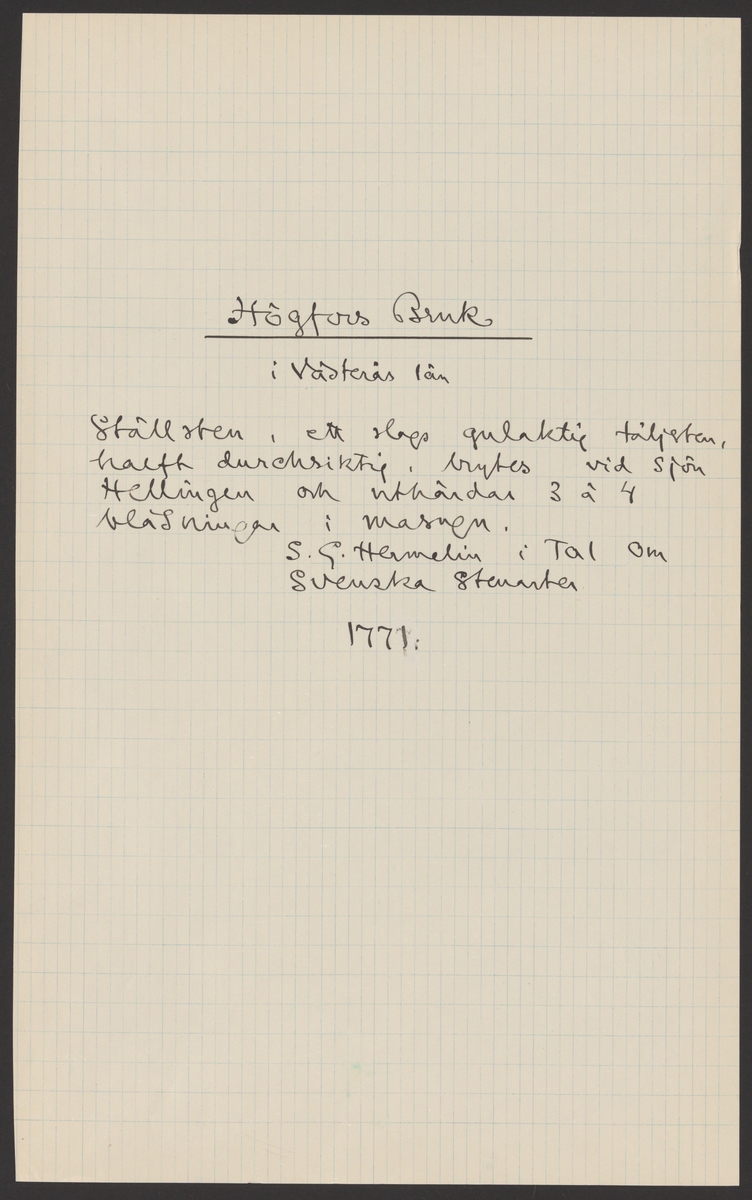 Högfors Bruk
i Västerås län
Ställsten, ett slags gulaktig täljsten,
halft durchsiktig, brytes vid sjön
Hellingen och uthärdar 3 à 4
blåsningar i masugn.
S. G. Hermelin i Tal om
Svenska Stenarter
1771.